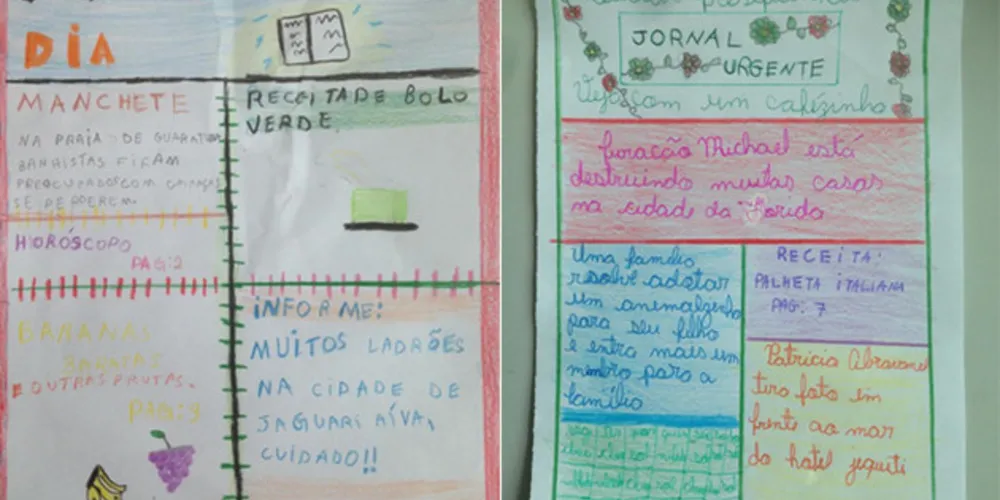 DIA
MANCHETE
NA PRAIA DE GUARATUBA
BANHISTAS FICAM
PREOCUPADOS COM CRIANÇAS
SE PERDEREM.
HORÓSCOPO
PAG:2
BANANAS
BARATAS
E OUTRAS FRUTAS.
PAG:3
RECEITA DE BOLO
VERDE.
INFORME:
MUITOS LADRÕES
NA CIDADE DE
JAGUARIAÍVA,
CUIDADO!!
JORNAL
URGENTE
Veja com um cafézinho
furacão Michael está
destruindo muitas casas
na cidade da Florida
Uma família
resolve adotar
um animalzinho
para seu filho
e entra mais um
membro para a
família
RECEITA:
PALHETA ITALIANA
PAG: 7
Patricia Abravanel
tira foto em
frente ao mar
do hotel jequiti